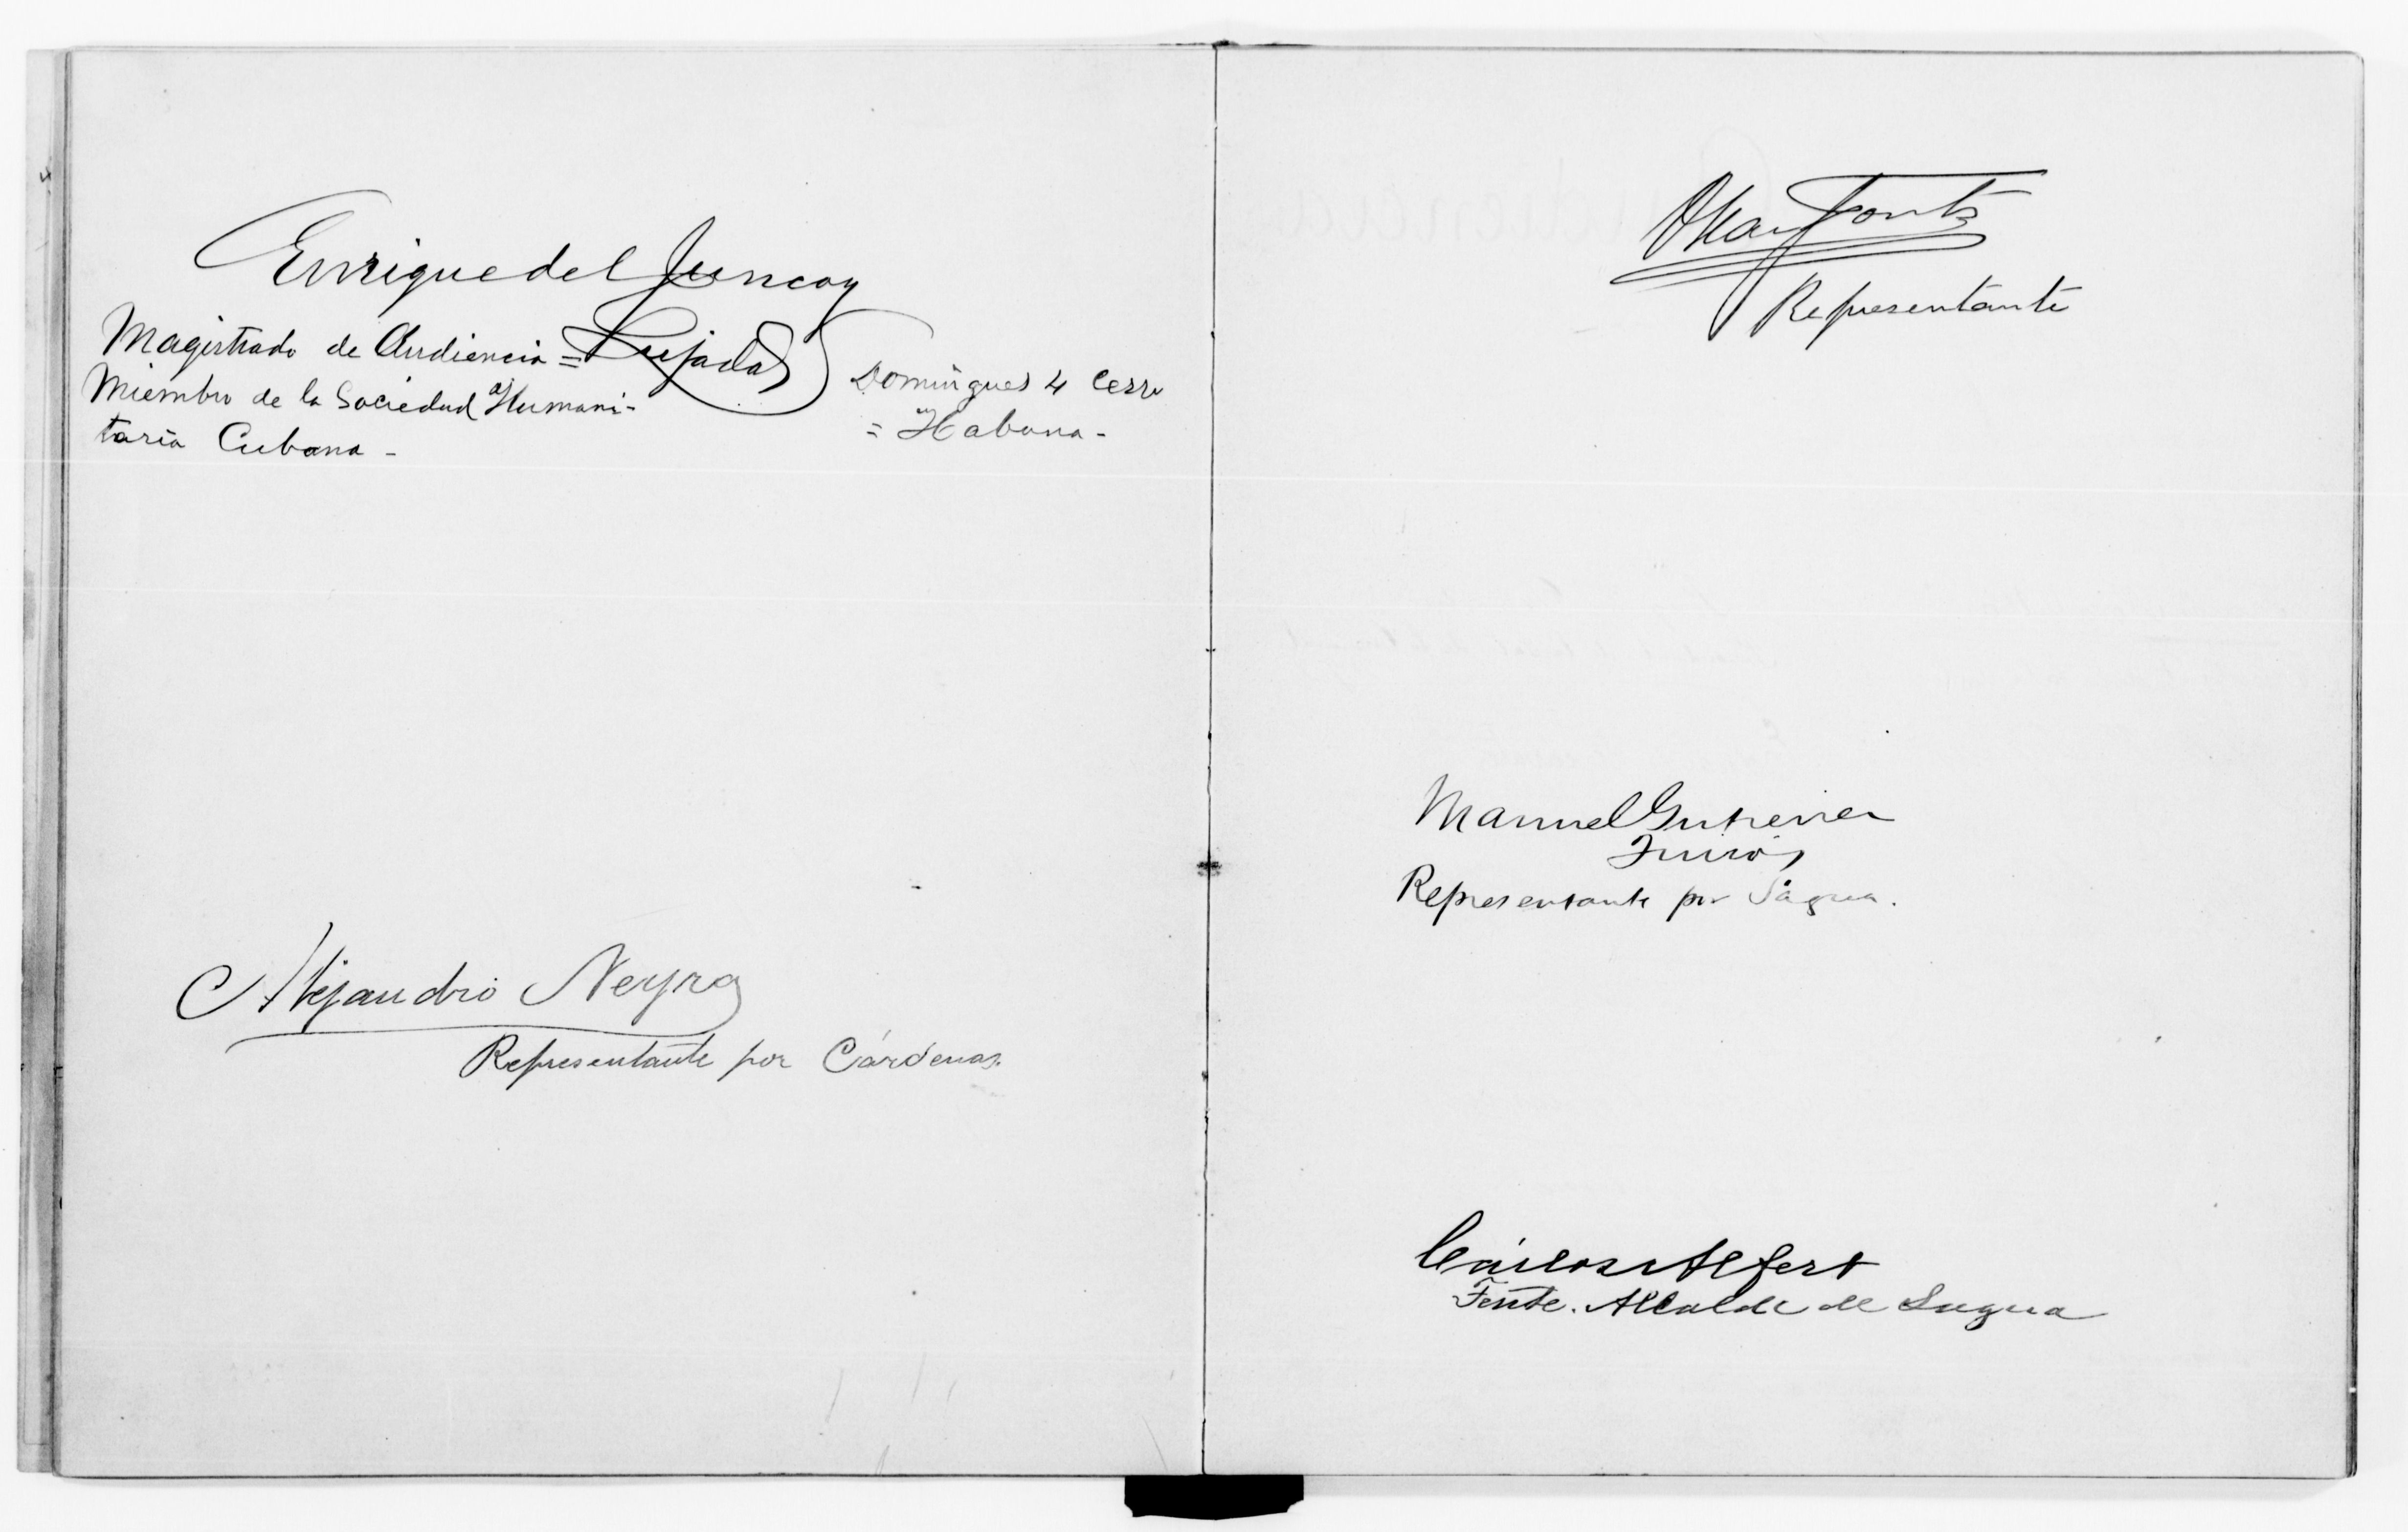 Enrique del Junco y
Pujadas
Magistrado de Audiencia =
Miembro de la Sociedad Humani-
taria Cubana -
Domingues 4 Cerro
= Habana -
Alejandro Neyra
Representante por Cárdenas.
Fonts
Representante
Manuel Gutierrez
Quirós
Representante por Sagua.
Cárlos Alfert
Tente. Alcalde de Sagua